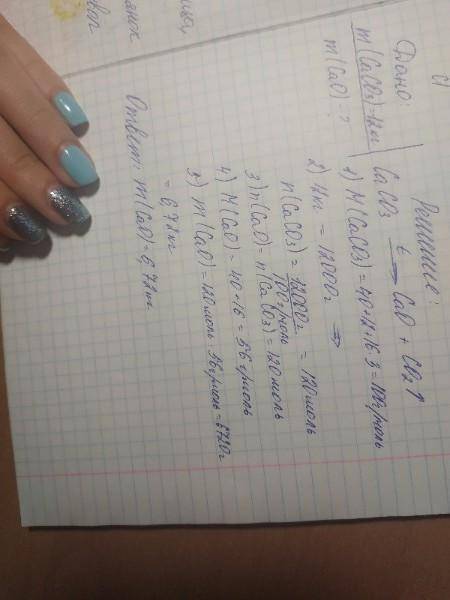 С1
Дано:
m(CaCO3)=12кг
m(CaO)-?
Решение:
CaCO3 t→ CaO + CO2↑
1) M(CaCO3)=40+12+16·3=100г/моль
2) 12кг = 12000г ⇒
n(CaCO3) = 12000г / 100г/моль = 120моль
3) n(CaO)= n(CaCO3)=120моль
4) M(CaO)=40+16=56г/моль
5) m(CaO)=120моль·56г/моль=6720г
= 6,72кг
Ответ: m(CaO)=6,72кг